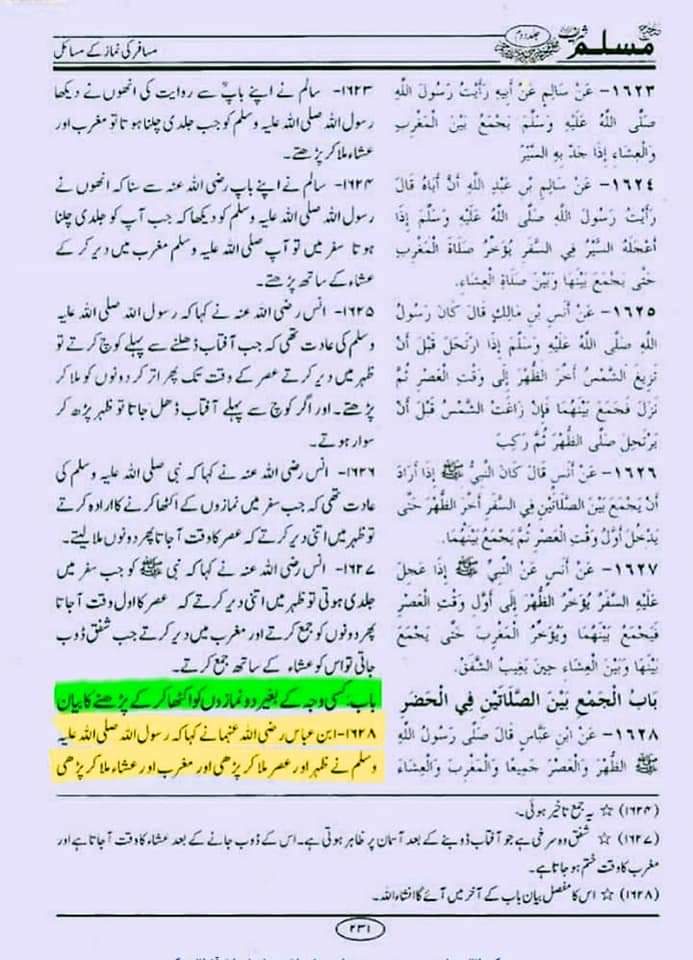 صحیح مسلم شریف جلد دوم
مسافر کی نماز کے مسائل
١٦٢٣- عَنْ سَالِمٍ عَنْ أَبِيهِ رَأَيْتُ رَسُولَ اللَّهِ
صَلَّى اللَّهُ عَلَيْهِ وَسَلَّمَ يَجْمَعُ بَيْنَ الْمَغْرِبِ
وَالْعِشَاءِ إِذَا جَدَّ بِهِ السَّيْرُ
١٦٢٤- عَنْ سَالِمِ بْنِ عَبْدِ اللَّهِ أَنَّ أَبَاهُ قَالَ
رَأَيْتُ رَسُولَ اللَّهِ صَلَّى اللَّهُ عَلَيْهِ وَسَلَّمَ إِذَا
أَعْجَلَهُ السَّيْرُ فِي السَّفَرِ يُؤَخِّرُ صَلَاةَ الْمَغْرِبِ
حَتَّى يَجْمَعَ بَيْنَهَا وَبَيْنَ صَلَاةِ الْعِشَاءِ.
١٦٢٥- عَنْ أَنَسِ بْنِ مَالِكٍ قَالَ كَانَ رَسُولُ
اللَّهِ صَلَّى اللَّهُ عَلَيْهِ وَسَلَّمَ إِذَا ارْتَحَلَ قَبْلَ أَنْ
تَزِيغَ الشَّمْسُ أَخَّرَ الظُّهْرَ إِلَى وَقْتِ الْعَصْرِ ثُمَّ
نَزَلَ فَجَمَعَ بَيْنَهُمَا فَإِنْ زَاغَتْ الشَّمْسُ قَبْلَ أَنْ
يَرْتَحِلَ صَلَّى الظُّهْرَ ثُمَّ رَكِبَ
١٦٢٦- عَنْ أَنَسٍ قَالَ كَانَ النَّبِيُّ ﷺ إِذَا أَرَادَ
أَنْ يَجْمَعَ بَيْنَ الصَّلَاتَيْنِ فِي السَّفَرِ أَخَّرَ الظُّهْرَ حَتَّى
يَدْخُلَ أَوَّلُ وَقْتِ الْعَصْرِ ثُمَّ يَجْمَعُ بَيْنَهُمَا.
١٦٢٧- عَنْ أَنَسٍ عَنْ النَّبِيِّ ﷺ إِذَا عَجِلَ
عَلَيْهِ السَّفَرُ يُؤَخِّرُ الظُّهْرَ إِلَى أَوَّلِ وَقْتِ الْعَصْرِ
فَيَجْمَعُ بَيْنَهُمَا وَيُؤَخِّرُ الْمَغْرِبَ حَتَّى يَجْمَعَ
بَيْنَهَا وَبَيْنَ الْعِشَاءِ حِينَ يَغِيبُ الشَّفَقُ.
بَابُ الْجَمْعِ بَيْنَ الصَّلَاتَيْنِ فِي الْحَضَرِ
١٦٢٨- عَنْ ابْنِ عَبَّاسٍ قَالَ صَلَّى رَسُولُ اللَّهِ
ﷺ الظُّهْرَ وَالْعَصْرَ جَمِيعًا وَالْمَغْرِبَ وَالْعِشَاءَ
۱۶۲۳- سالم نے اپنے باپ سے روایت کی انھوں نے دیکھا
رسول اللہ صلی اللہ علیہ وسلم کو جب جلدی چلنا ہوتا تو مغرب اور
عشاء ملا کر پڑھتے۔
۱۶۲۴- سالم نے اپنے باپ رضی اللہ عنہ سے سنا کہ انھوں نے
رسول اللہ صلی اللہ علیہ وسلم کو دیکھا کہ جب آپ کو جلدی چلنا
ہوتا سفر میں تو آپ صلی اللہ علیہ وسلم مغرب میں دیر کر کے
عشاء کے ساتھ پڑھتے۔
۱۶۲۵- انس رضی اللہ عنہ نے کہا کہ رسول اللہ صلی اللہ علیہ
وسلم کی عادت تھی کہ جب آفتاب ڈھلنے سے پہلے کوچ کرتے تو
ظہر میں دیر کرتے عصر کے وقت تک پھر اتر کر دونوں کو ملا کر
پڑھتے۔ اور اگر کوچ سے پہلے آفتاب ڈھل جاتا تو ظہر پڑھ کر
سوار ہوتے۔
۱۶۲۶- انس رضی اللہ عنہ نے کہا کہ نبی صلی اللہ علیہ وسلم کی
عادت تھی کہ جب سفر میں نمازوں کے اکٹھا کرنے کا ارادہ کرتے
تو ظہر میں اتنی دیر کرتے کہ عصر کا وقت آ جاتا پھر دونوں ملا لیتے۔
۱۶۲۷- انس رضی اللہ عنہ نے کہا کہ نبی ﷺ کو جب سفر میں
جلدی ہوتی تو ظہر میں اتنی دیر کرتے کہ عصر کا اول وقت آ جاتا
پھر دونوں کو جمع کرتے اور مغرب میں دیر کرتے جب شفق ڈوب
جاتی تو اس کو عشاء کے ساتھ جمع کرتے۔
باب: کسی وجہ کے بغیر دو نمازوں کو اکٹھا کر کے پڑھنے کا بیان
۱۶۲۸- ابن عباس رضی اللہ عنہما نے کہا کہ رسول اللہ صلی اللہ علیہ
وسلم نے ظہر اور عصر ملا کر پڑھی اور مغرب اور عشاء ملا کر پڑھی
(۱۶۲۴) ☆ یہ جمع تاخیر ہوئی۔
(۱۶۲۷) ☆ شفق وہ سرخی ہے جو آفتاب ڈوبنے کے بعد آسمان پر ظاہر ہوتی ہے۔ اس کے ڈوب جانے کے بعد عشاء کا وقت آ جاتا ہے اور
مغرب کا وقت ختم ہو جاتا ہے۔
(۱۶۲۸) ☆ اس کا مفصل بیان باب کے آخر میں آئے گا انشاء اللہ۔
۲۳۱